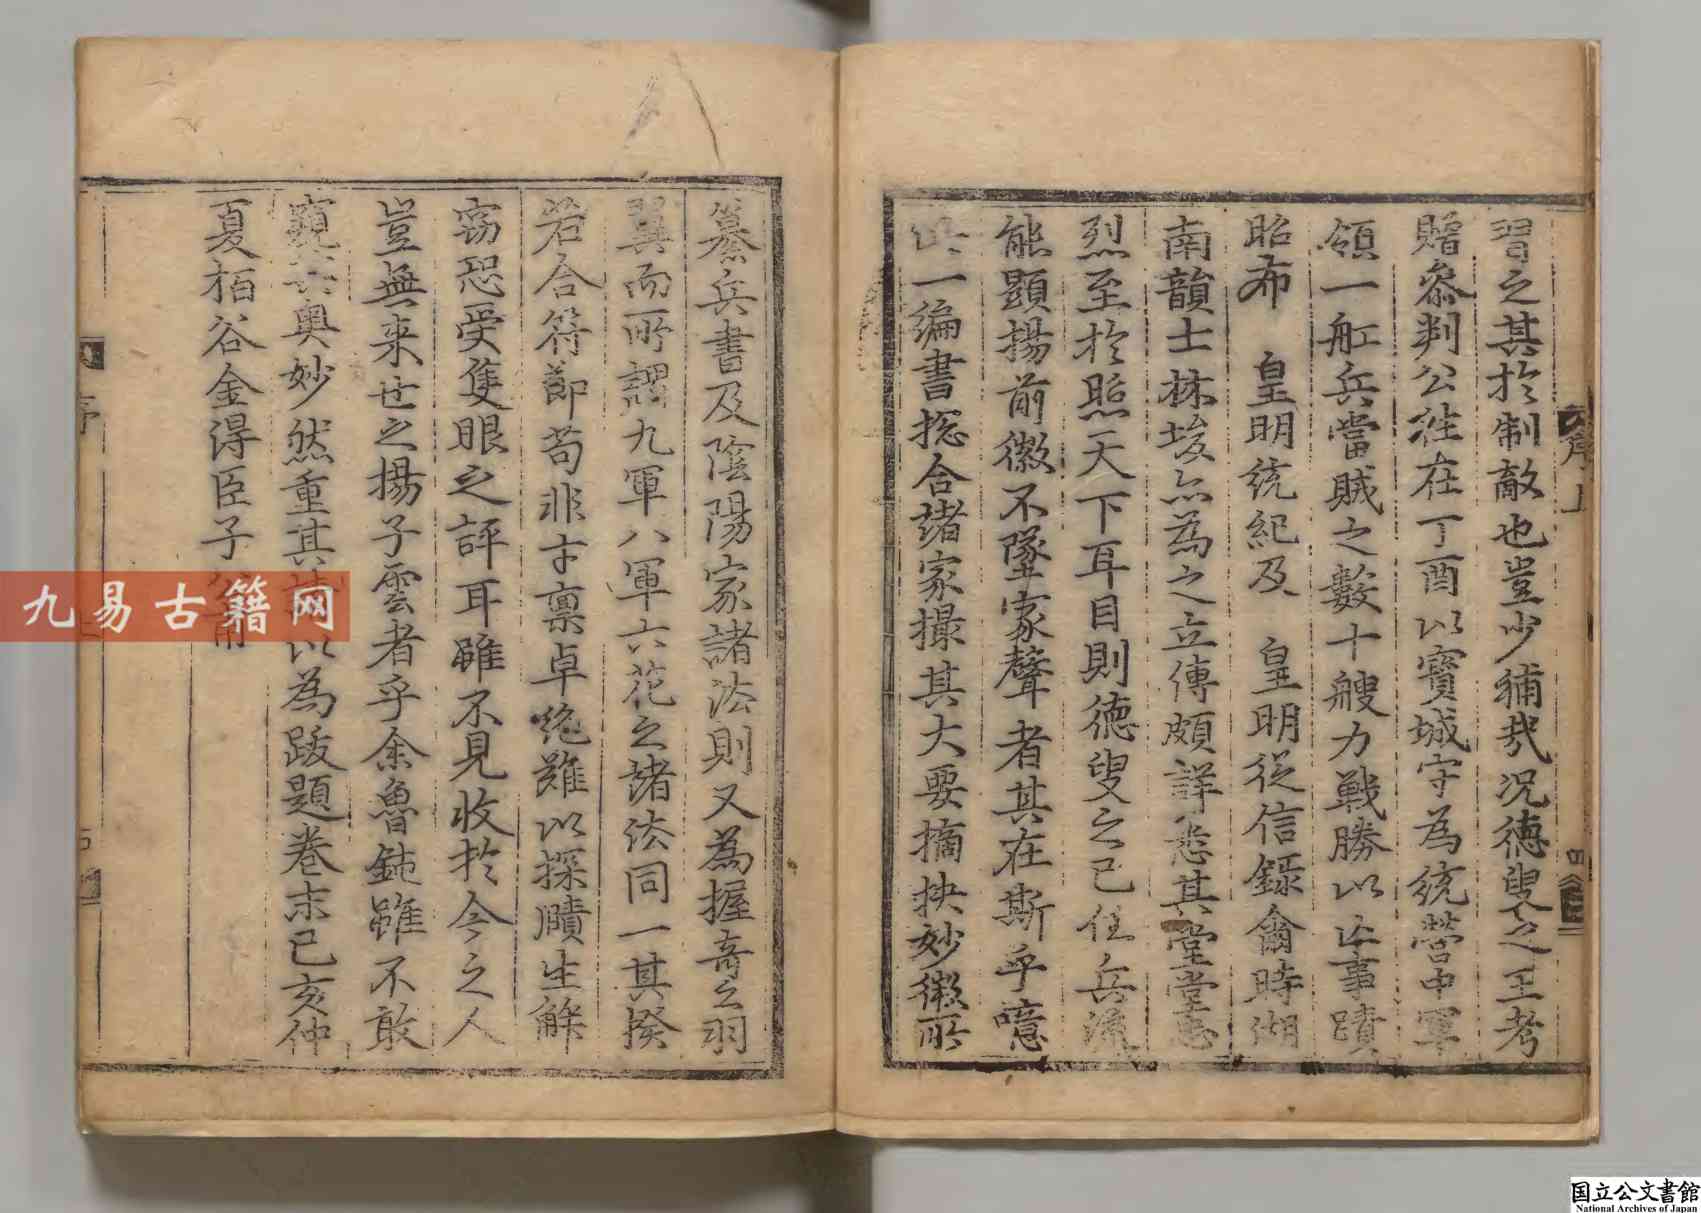 習之其於制敵也豈少補哉況德叟之王考
贈參判公往在丁酉以寶城守為統營中軍
領一舡兵當賊之數十艘力戰勝以此事蹟
昭布 皇明統紀及 皇明從信錄龠時湖
南韻士林埈亦為之立傳頗詳悉其堂堂忠
烈至於照天下耳目則德叟之已任兵流
能顯揚前徽不墜家聲者其在斯乎噫
一編書摠合諸家撮其大要摘抉妙徽所
序上
纂兵書及陰陽家諸法則又為握奇之羽
翼而所謂九軍八軍六花之諸法同一其揆
若合符節苟非才稟卓絶難以探賾生解
窃恐受隻眼之評耳雖不見收於今之人
豈無來世之揚子雲者乎余魯鈍雖不敢
窺其奥妙然重其以為跋題卷末己亥仲
夏栢谷金得臣子
序
九易古籍网
国立公文書館
National Archives of Japan